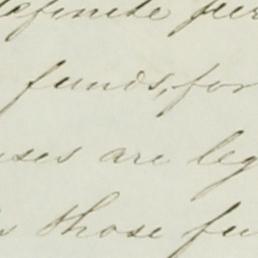 definite per
funds, for
uses are leg
s those fu